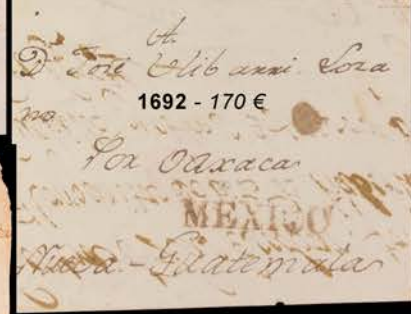 A.
D José Olibanni Loza
no
1692 - 170 €
Por Oaxaca
MEXICO
Nueva-Guatemala